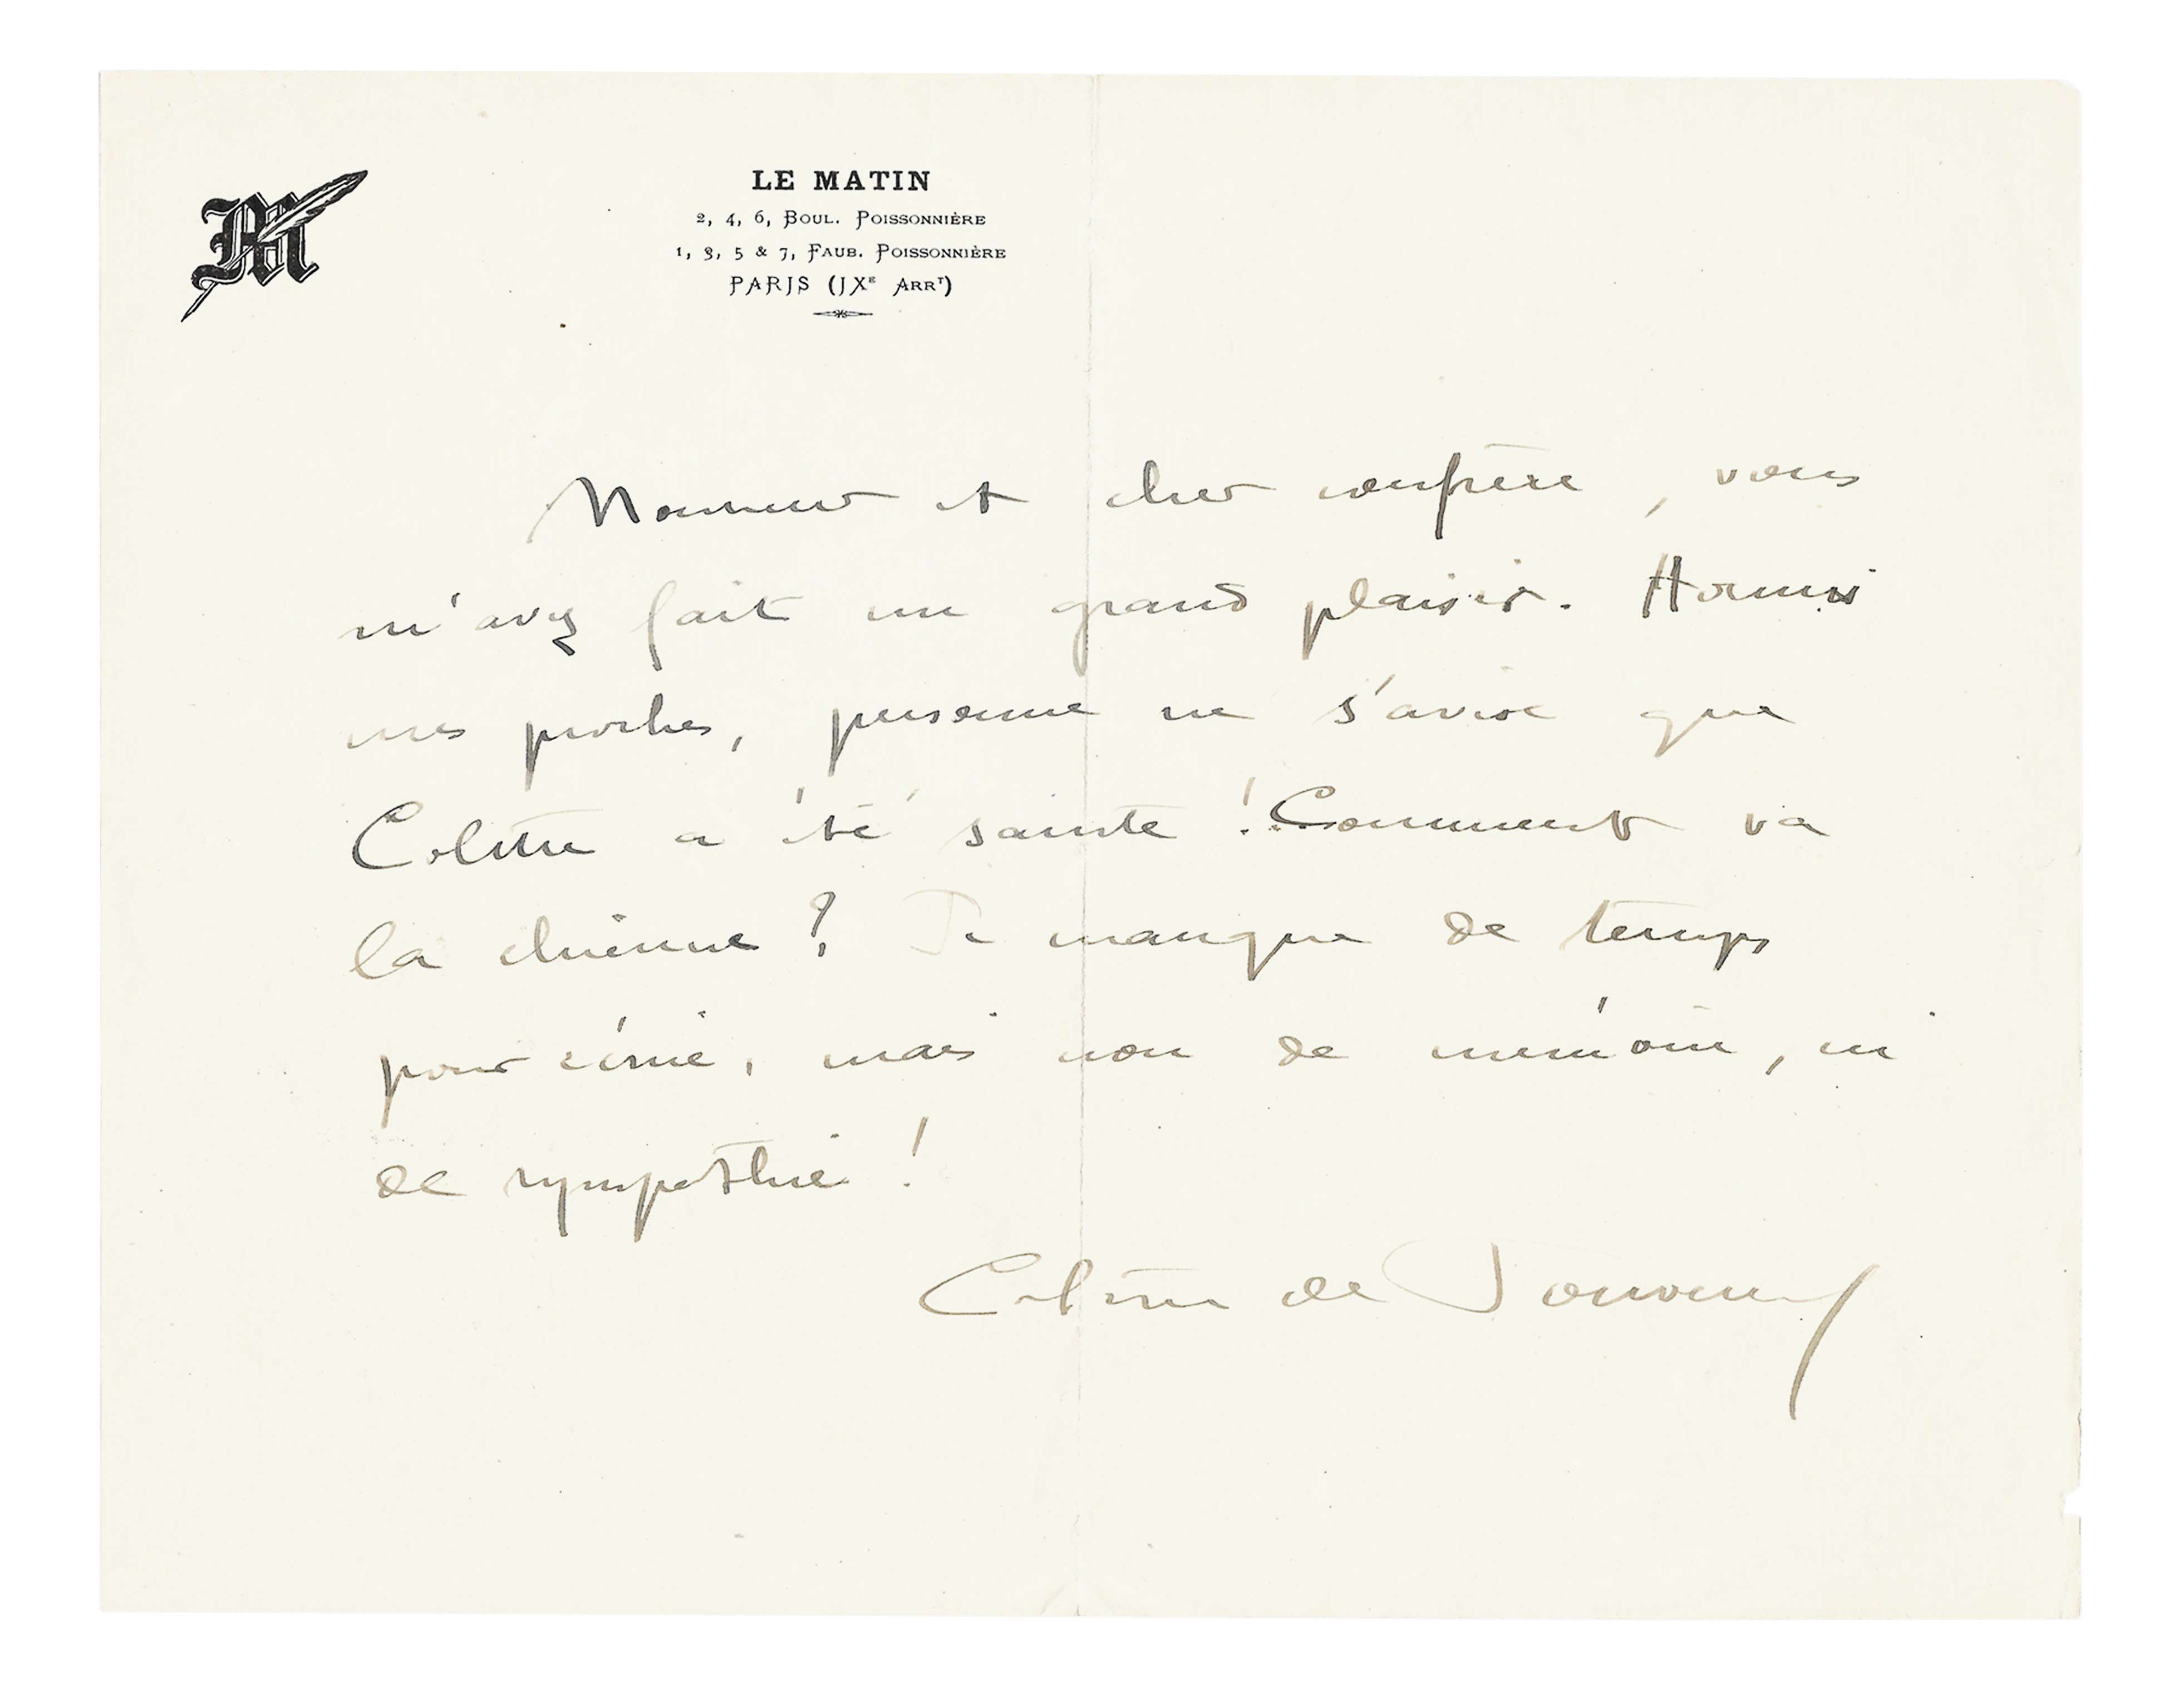 M
LE MATIN
2, 4, 6, BOUL. POISSONNIÈRE
1, 3, 5 & 7, FAUB. POISSONNIÈRE
PARIS (IXE ARRT)
Monsieur et cher confrère, vous
m'avez fait un grand plaisir. Hormis
mes proches, personne ne s'avise que
Colette a été sainte ! Comment va
la chienne ? Je manque de temps
pour écrire, mais non de mémoire, ni
de sympathie !
Colette de Jouvenel